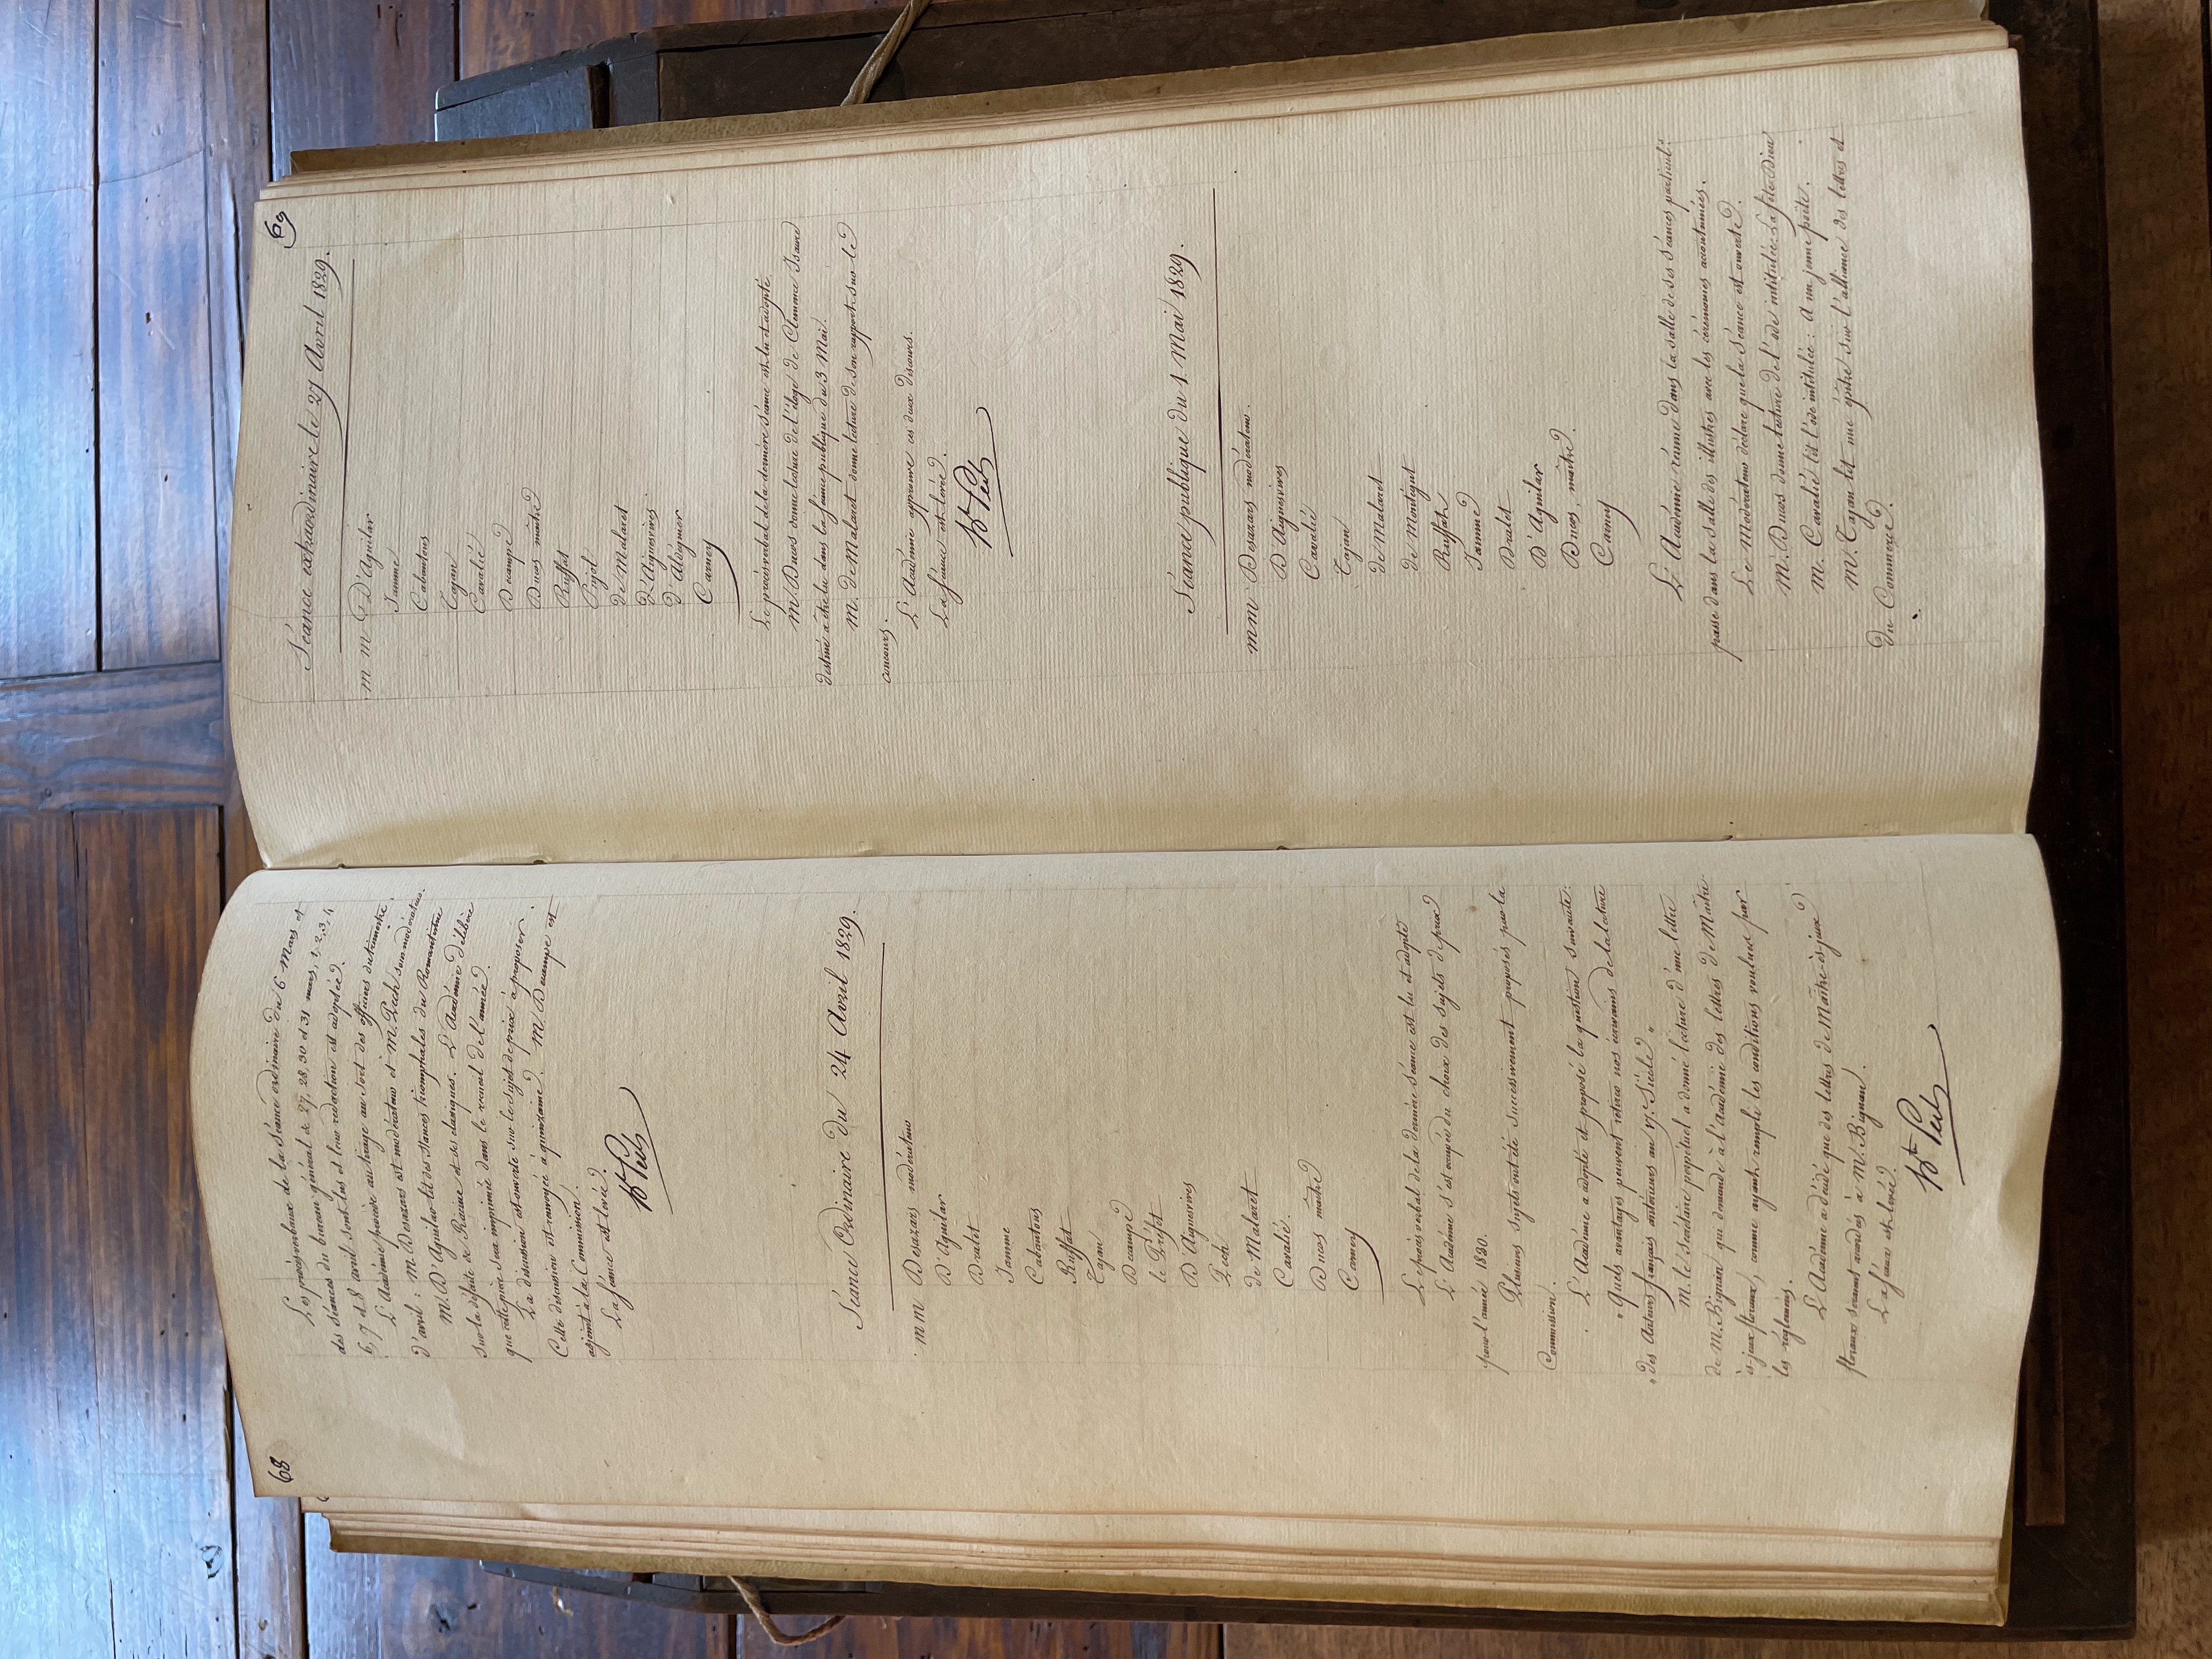 68
Les procès verbaux de la Séance ordinaire du 6 Mars et
des séances du bureau général de 27, 28, 30 et 31 mars, 1, 2, 3, 4
6, 7 et 8 avril sont lus et leur rédaction est adoptée.
L'Académie procède au tirage au sort des officiers du trimestre
d'avril : M. Desazars est modérateur et M. Pech sous modérateur.
M. D'Aguilar lit des stances triomphales du Romantisme
sur la défaite de Racine et des classiques. L'Académie délibère
que cette pièce sera imprimée dans le recueil de l'année.
La discussion est ouverte sur le sujet de prix à proposer.
Cette discussion est renvoyée à quinzaine. M. Decampe est
adjoint à la Commission.
La séance est levée.
Séance Ordinaire du 24 Avril 1829.
mm Desazars modérateur
D'Aguilar
Dralet
Jamme
Cabantous
Ruffat
Tajan
Decampe
le Préfet
D'Aiguesvives
Pech
de Malaret
Cavalié.
Ducos, maître
Carney
Le procès verbal de la dernière séance est lu et adopté
L'Académie s'est occupée du choix des sujets de prix
pour l'année 1830.
Plusieurs sujets ont été successivement proposés par la
Commission.
L'Académie a adopté et proposé la question suivante:
" Quels avantages peuvent retirer nos écrivains de la lecture
" des Auteurs français antérieurs au 17.e Siècle "
M. le Secrétaire perpétuel a donné lecture d'une lettre
de M. Bignan qui demande à l'Académie des lettres de Maître
ès-jeux floraux, comme ayant rempli les conditions voulues par
les réglemens.
L'Académie a décidé que des lettres de Maître-ès-jeux
floraux seraient accordées à M. Bignan.
La séance est levée.
69
Séance extraordinaire le 27 Avril 1829.
m m D'Aguilar
Jamme
Cabantous
Tajan
Cavalié
Decampe
Ducos maître
Ruffat
Pujol
de Malaret
D'Aiguesvives
d'Aldéguier
Carney
Le procès verbal de la dernière séance est lu et adopté.
M. Ducos donne lecture de l'éloge de Clémence Isaure
destiné à être lu dans la séance publique du 3 Mai.
M. de Malaret donne lecture de son rapport sur le
concours.
L'Académie approuve ces deux discours.
La séance est levée.
Séance publique du 1. Mai 1829.
mm Desazars modérateur.
D'Aiguesvives
Cavalié
Tajan
de Malaret
de Montégut
Ruffat
Jamme
Dralet
D'Aguilar
Ducos, maître.
Carney
L'Académie réunie dans la salle de ses séances particul.es
passe dans la salle des illustres avec les cérémonies accoutumées.
Le Modérateur déclare que la séance est ouverte.
M. Ducos donne lecture de l'ode intitulée: La fête Dieu
M. Cavalié lit l'ode intitulée : A un jeune poète.
M. Tajan lit une épître sur l'alliance des lettres et
du Commerce.